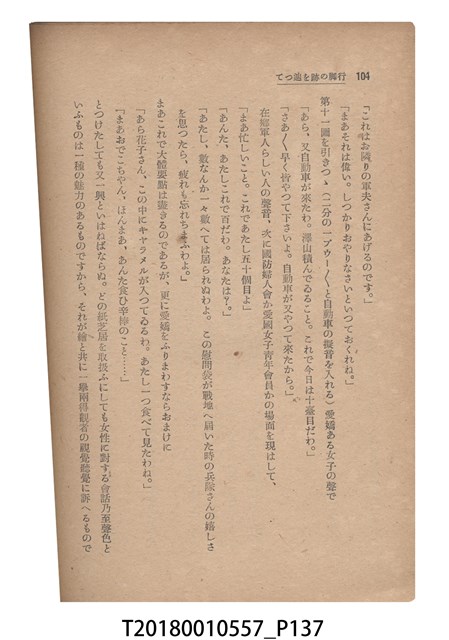 104 行脚の跡を追つて
「これはお隣りの軍夫さんにあげるのです。」
「まあそれは偉い。しつかりおやりなさいといつておくれね。」
第十一圖を引きつゝ（二分の一ブウー〱と自動車の擬音を入れる）愛嬌ある女子の聲で
「あら、又自動車が來たわ。澤山積んでゐること。これで今日は十臺目だわ。」
「さあ〱早く皆やつて下さいよ。自動車が又やつて來たから。」
在鄕軍人らしい人の聲音、次に國防婦人會か愛國女子靑年會員かの場面を現はして、
「まあ忙しいこと。これであたし五十個目よ」
「あんた、あたしこれで百だわ。あなたは？。」
「あたし、數なんか一々數へては居られぬわよ。この慰問袋が戰地へ屆いた時の兵隊さんの嬉しさ
を思つたら、疲れも忘れちまふわよ。」
まあこれで大體要點は盡きるのであるが、更に愛嬌をふりまわすならおまけに
「あら花子さん、この中にキヤラメルが入つてゐるわ。あたし一つ食べて見たわね。」
「まあおでこちやん、ほんまあ、あんた食ひ辛棒のこと……」
とつけたしても又一興といはねばならぬ。どの紙芝居を取扱ふにしても女性に對する會話乃至聲色と
いふものは一種の魅力のあるものですから、それが繪と共に一擧兩得觀者の視覺聽覺に訴へるもので
T20180010557_P137